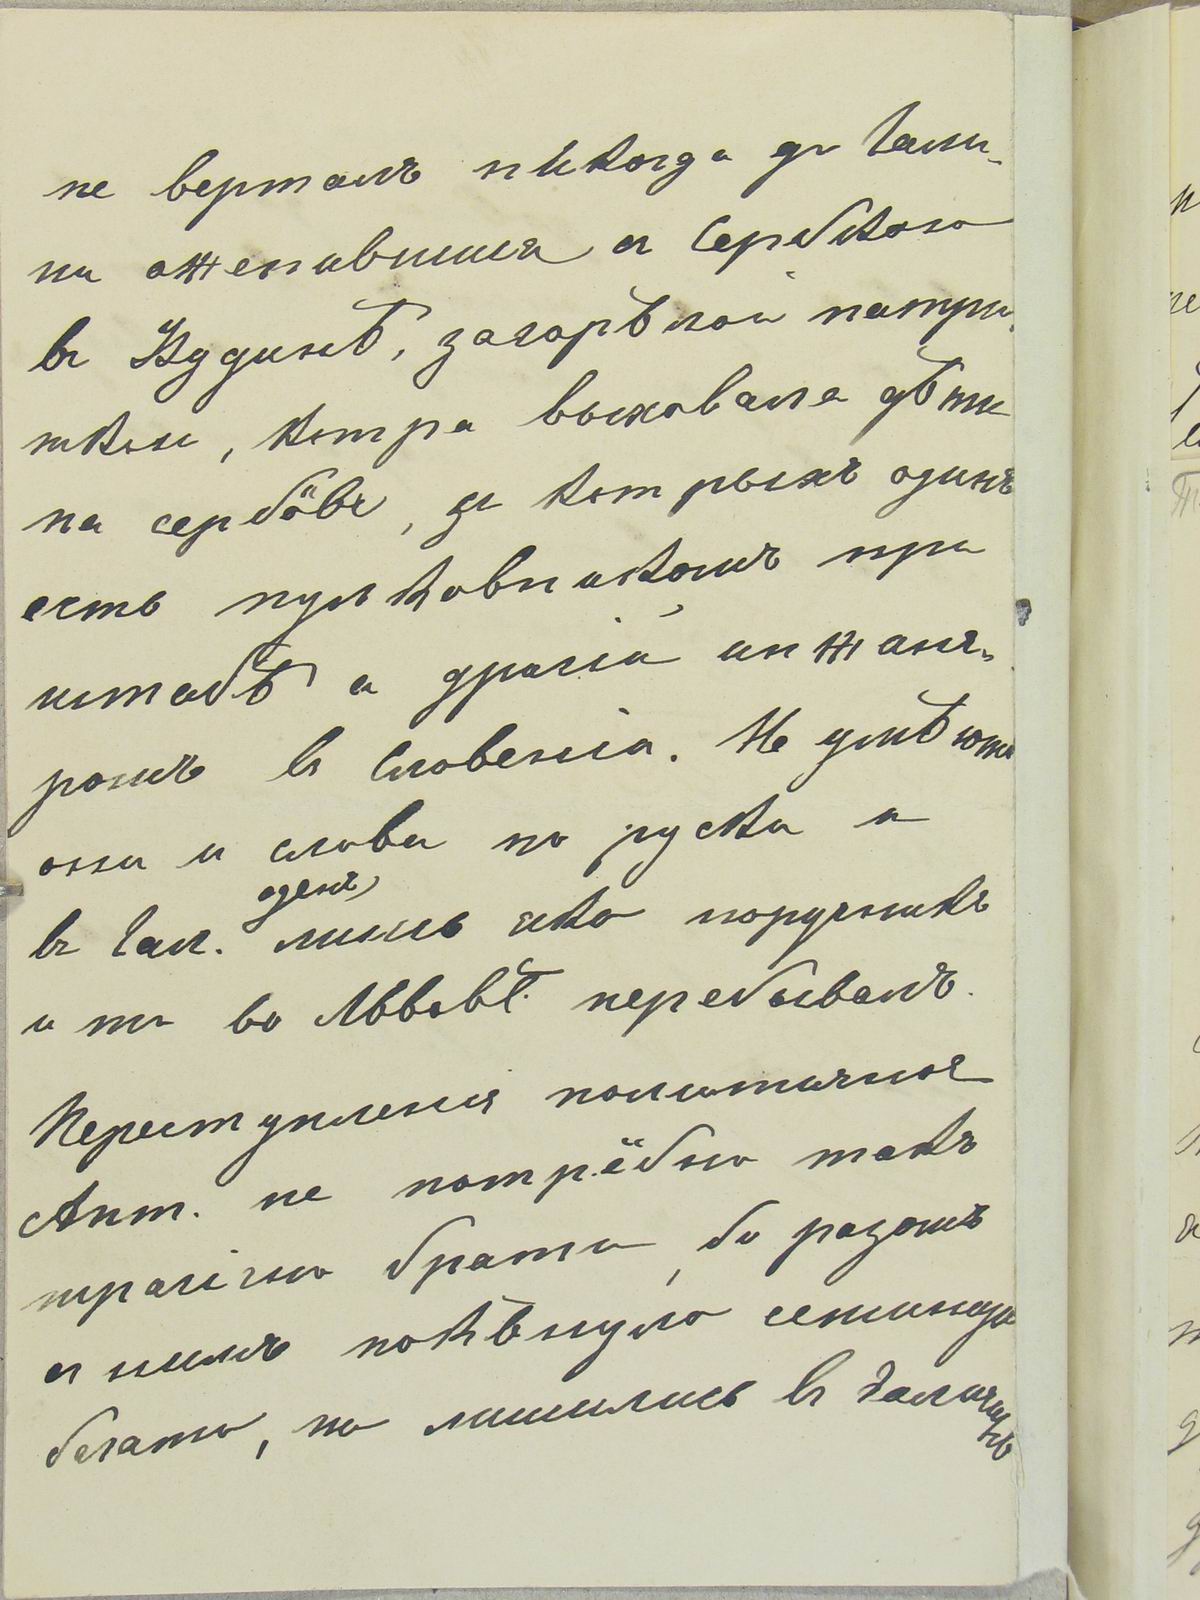 не вертавъ нѣкогда до Гали-
ни оженившися съ Сербкою
въ Будинѣ, загорѣлою патри-
откою, котра выховала дѣти
на сербôвъ, зъ котрыхъ одинъ
есть пулковникомъ при
штабѣ а другій инжане-
ромъ въ Словеніи. Не умѣютъ
они и слова по руски и
въ Гал. оденъ лишь яко поручникъ
и то во Львовѣ перебывалъ.
Переступленія политичного
Ант. не потрёбно такъ
трагічно брати, бо разомъ
съ нимъ покѣнуло семинарію
богато, но лишились въ Галичинѣ